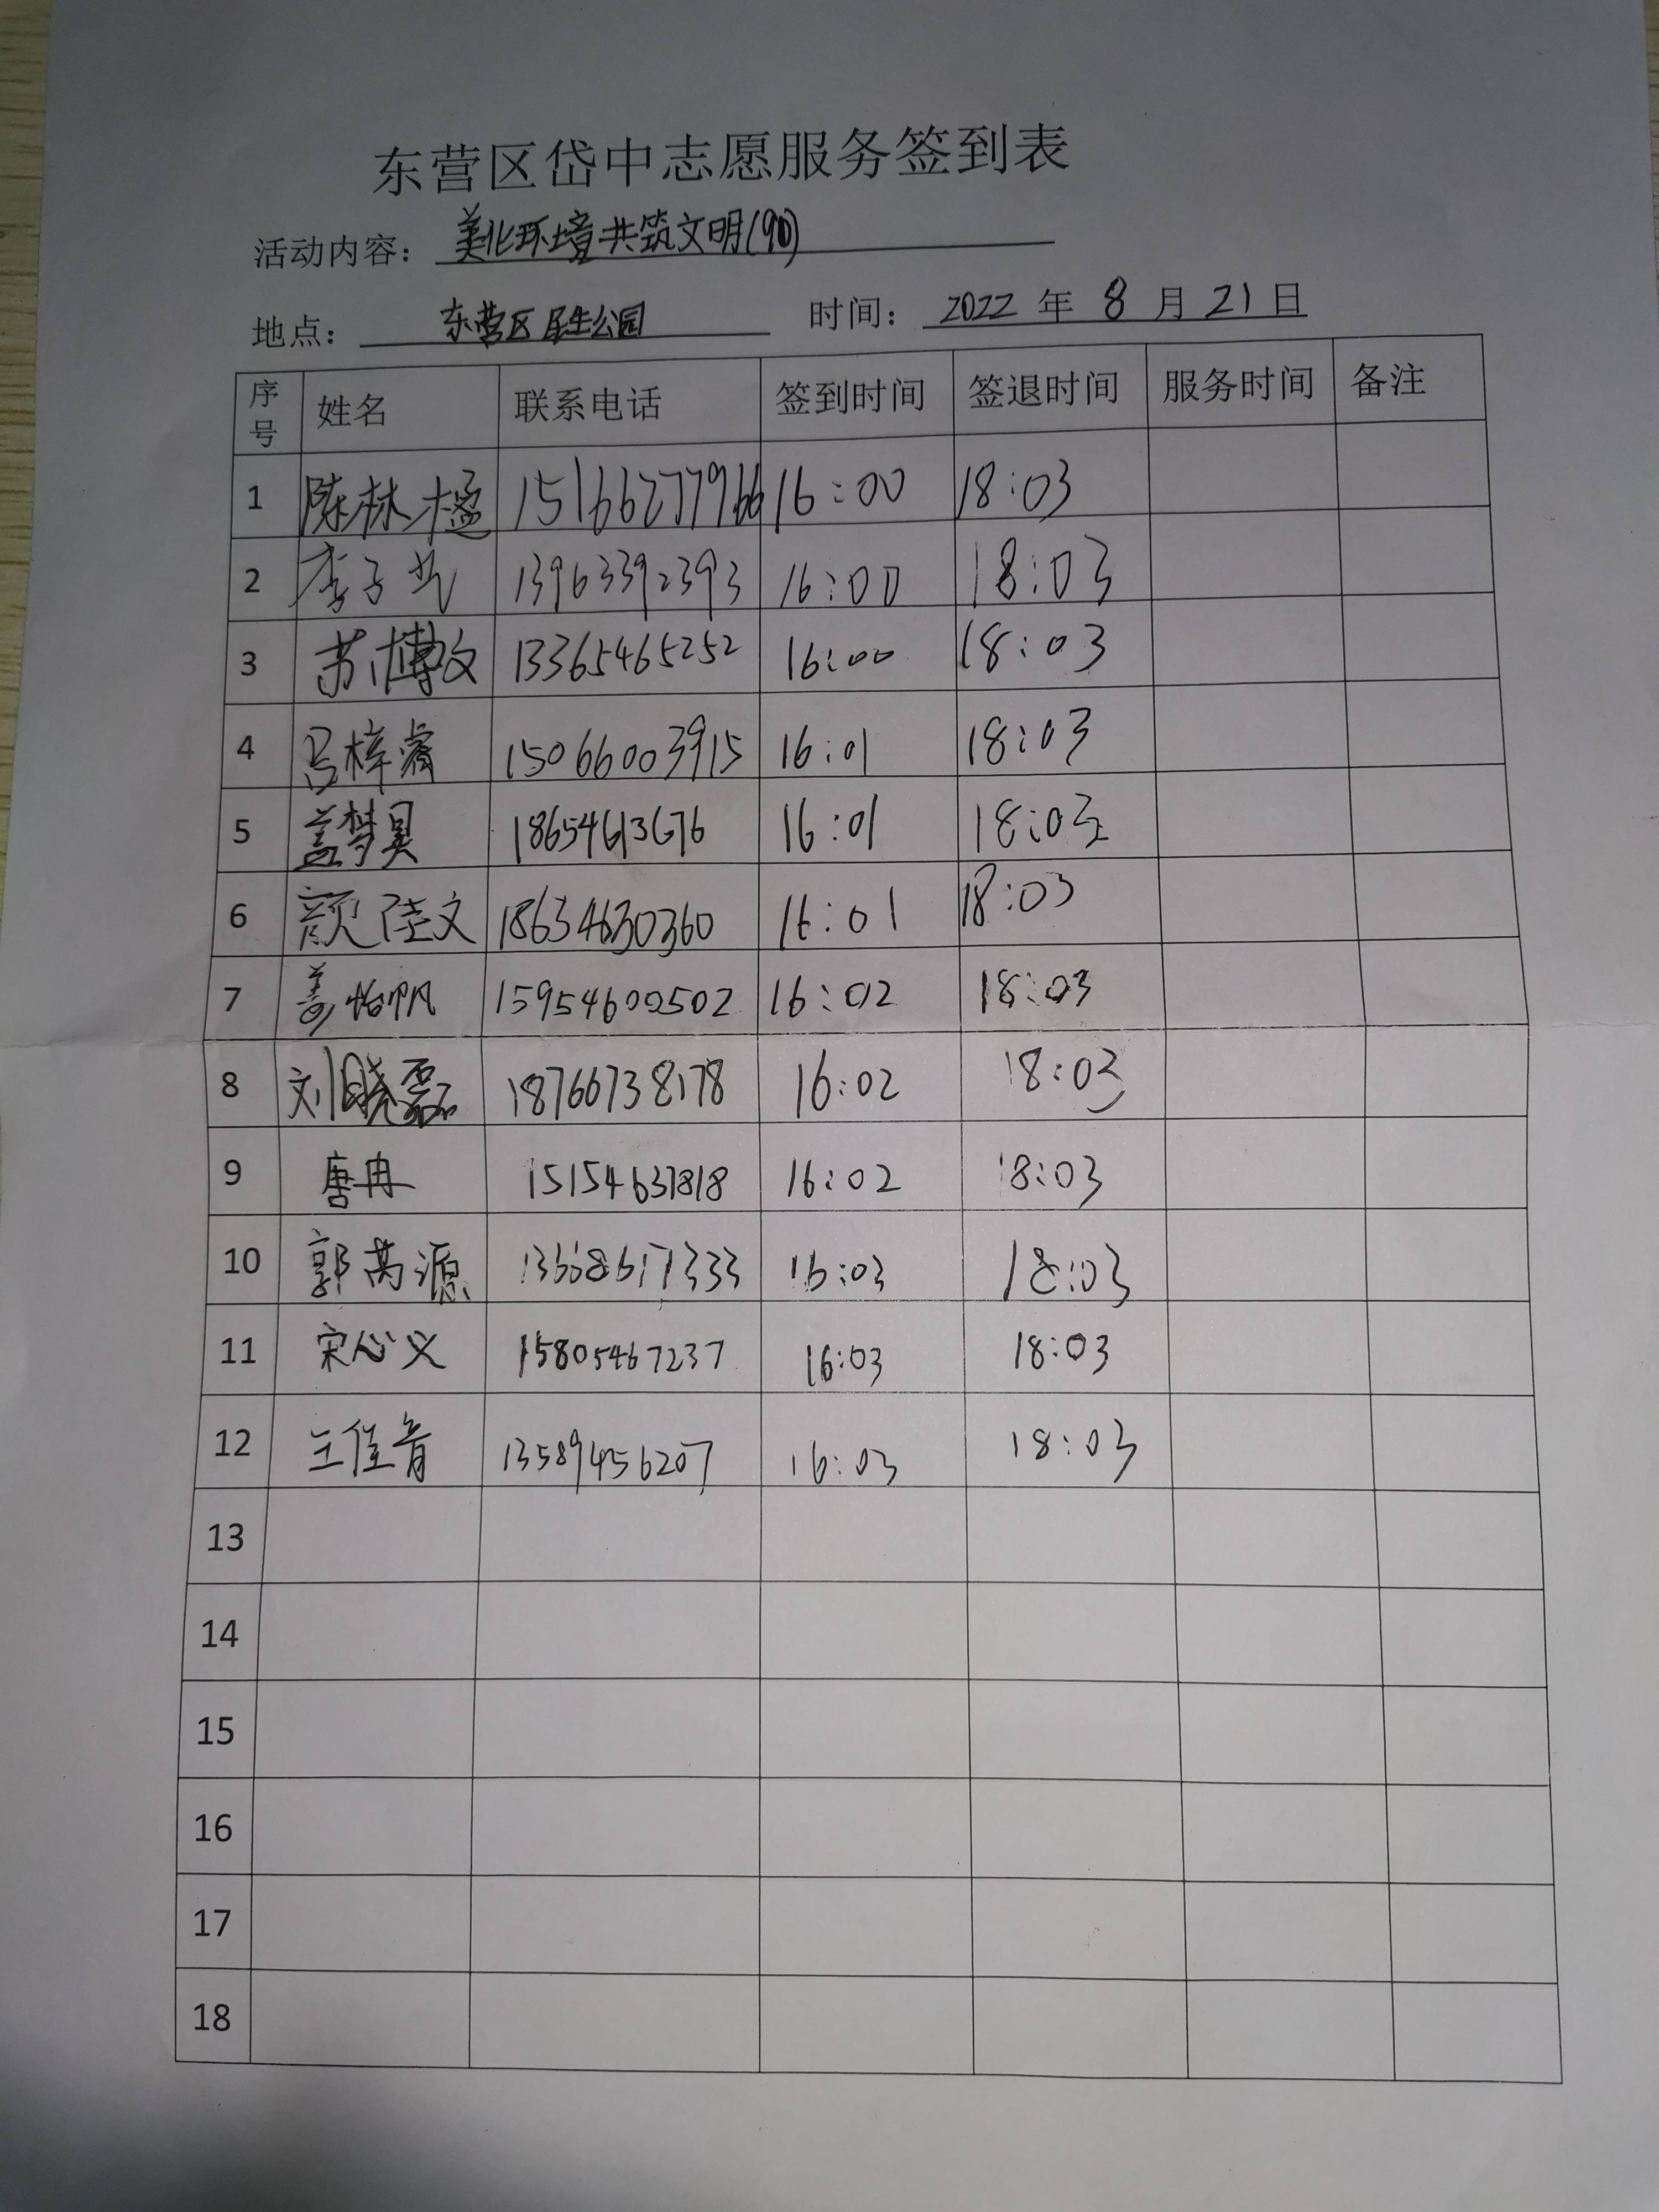 东营区岱中志愿服务签到表
活动内容：美化环境共筑文明(90)
地点：东营区民生公园 时间：2022年8月21日
序号 姓名 联系电话 签到时间 签退时间 服务时间 备注
1 陈林楹 15166277966 16:00 18:03
2 李子艺 13963392393 16:00 18:03
3 苏博文 13365465252 16:00 18:03
4 吕梓睿 15066003915 16:01 18:03
5 盖梦昊 18654613676 16:01 18:03
6 颜陆文 18634630360 16:01 18:03
7 姜怡帆 15954600502 16:02 18:03
8 刘晓磊 18766738178 16:02 18:03
9 唐冉 15154631818 16:02 18:03
10 郭芮源 16:03 18:03
11 宋心义 15805467237 16:03 18:03
12 王佳音 13589456207 16:03 18:03
13
14
15
16
17
18